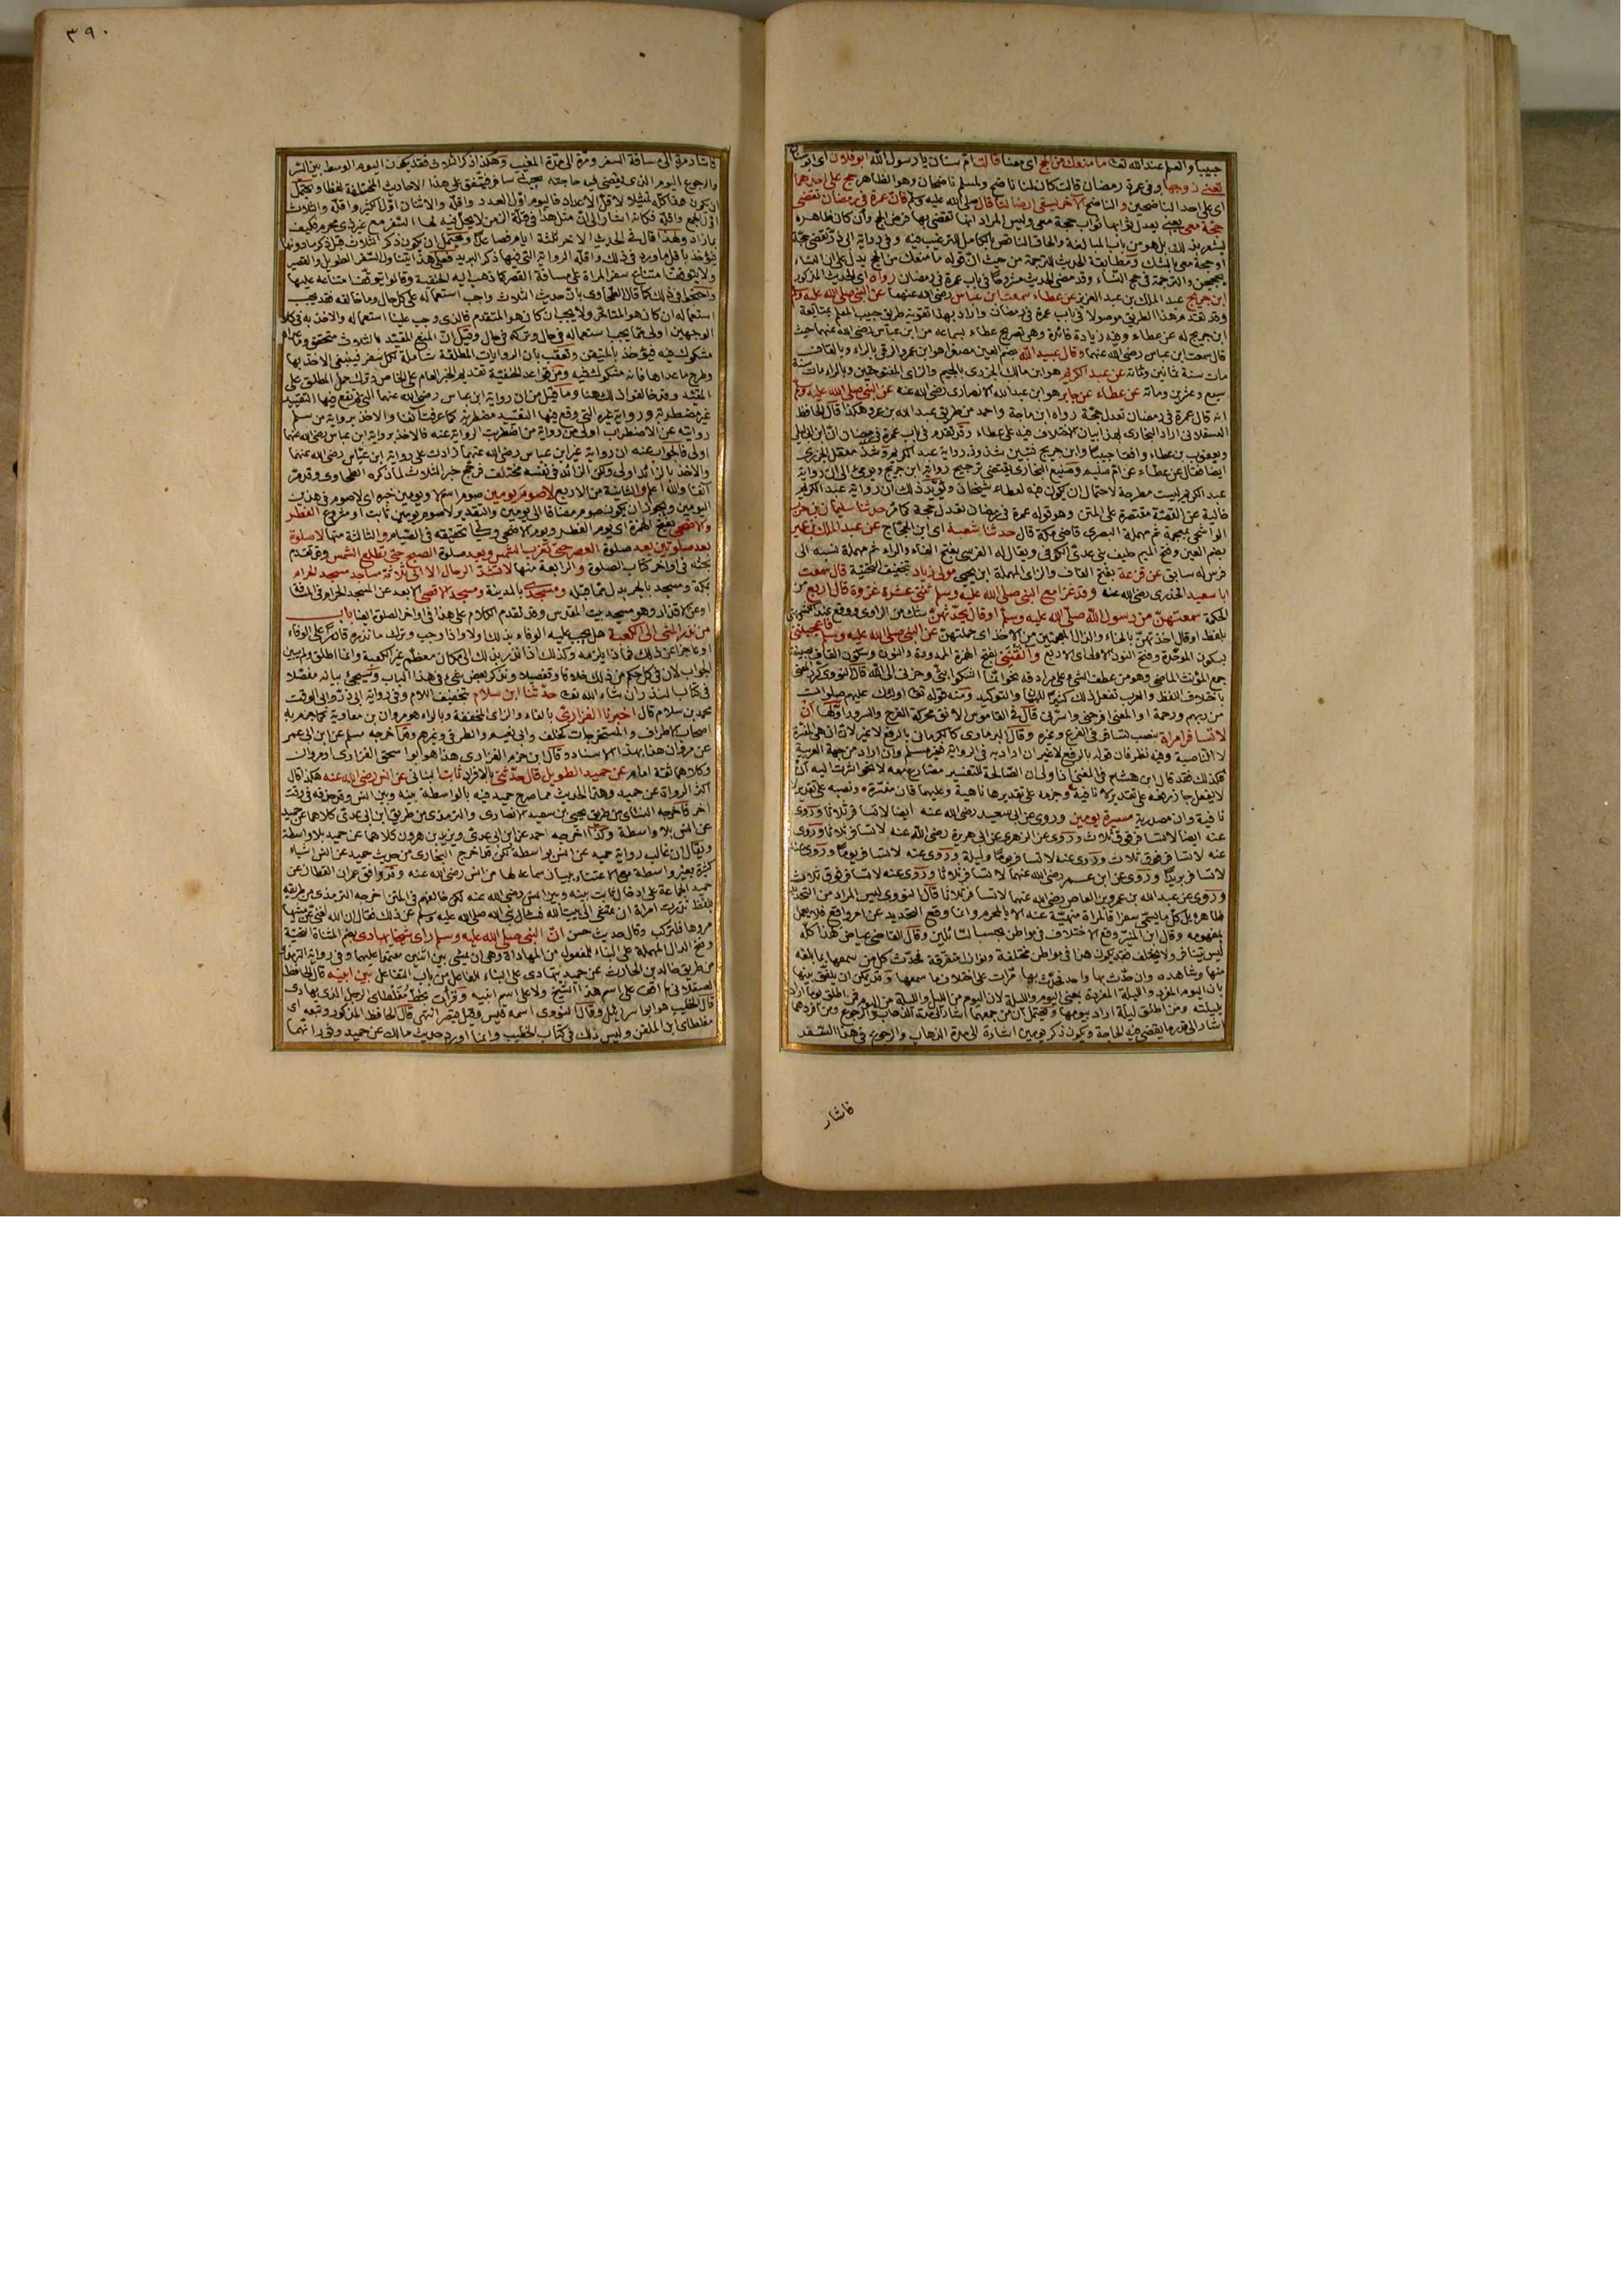 حبيبا والعلم عند الله تعالى ما منعك من الحج اى معنا قالت ام سنان يا رسول الله ابو فلان اى ابو سنان
تعنى زوجها وفى عمرة رمضان قالت كان لنا ناضح ولمسلم ناضحان وهو الظاهر حج على احدهما
اى على احد الناضحين والناضح الآخر يسقى ارضا لنا قال صلى الله عليه وسلم فان عمرة فى رمضان تقضى
حجة معى يعنى يعدل ثوابها ثواب حجة معى وليس المراد انها تقضى بها فرض الحج وان كان ظاهره
يشعر بذلك بل هو من باب المبالغة والحاق الناقص بالكامل للترغيب فيه وفى رواية ابى ذر تقضى حجة
او حجة معى بالشك ومطابقة الحديث للترجمة من حيث ان قوله ما منعك من الحج يدل على ان النساء
يحججن والترجمة فى حج النساء وقد مضى الحديث مشروحا فى باب عمرة فى رمضان رواه اى الحديث المذكور
ابن جريج عبد الملك بن عبد العزيز عن عطاء سمعت ابن عباس رضى الله عنهما عن النبى صلى الله عليه وسلم
وقد تقدم هذا الطريق موصولا فى باب عمرة فى رمضان واراد بهذا تقوية طريق حبيب المعلم بمتابعة
ابن جريج له عن عطاء وفيه زيادة فائدة وهى تصريح عطاء بسماعه من ابن عباس رضى الله عنهما حيث
قال سمعت ابن عباس رضى الله عنهما وقال عبيد الله بضم العين مصغرا هو ابن عمرو الرقى بالراء وبالقاف
مات سنة ثمانين ومائة عن عبد الكريم هو ابن مالك الجزرى بالجيم والزاى المفتوحتين وبالراء مات سنة
سبع وعشرين ومائة عن عطاء عن جابر هو ابن عبد الله الانصارى رضى الله عنه عن النبى صلى الله عليه وسلم
انه قال عمرة فى رمضان تعدل حجة رواه ابن ماجة واحمد من طريق عبيد الله بن عمرو هكذا قال الحافظ
العسقلانى اراد البخارى بهذا بيان الاختلاف فيه على عطاء وقد تقدم فى باب عمرة فى رمضان ان ابن ابى ليلى
ويعقوب بن عطاء وافقا حبيبا وابن جريج فتبين شذوذ رواية عبد الكريم وشذ معقل الجزرى
ايضا فقال عن عطاء عن ام سليم وصنيع البخارى يقتضى ترجيح رواية ابن جريج ويومئ الى ان رواية
عبد الكريم ليست مطرحة لاحتمال ان يكون فيه لعطاء شيخان ويؤيد ذلك ان رواية عبد الكريم
خالية عن القصة مقتصرة على المتن وهو قوله عمرة فى رمضان تعدل حجة كما مر حدثنا سليمان بن حرب
الواشحى بمعجمة ثم مهملة البصرى قاضى مكة قال حدثنا شعبة اى ابن الحجاج عن عبد الملك بن عمير
بضم العين وفتح الميم حليف بنى عدى الكوفى ويقال له الفرسى بفتح الفاء والراء ثم مهملة نسبة الى
فرس له سابق عن قزعة بفتح القاف والزاى المهملة ابن يحيى مولى زياد بتخفيف التحتية قال سمعت
ابا سعيد الخدرى رضى الله عنه وقد غزا مع النبى صلى الله عليه وسلم ثنتى عشرة غزوة قال اربع من
الحكمة سمعتهن من رسول الله صلى الله عليه وسلم او قال يحدثهن شك من الراوى
بلفظ او قال اخذتهن بالخاء والذال المعجمتين من الاخذ اى حملتهن عن النبى صلى الله عليه وسلم فاعجبننى
بسكون الموحدة وفتح النون الاولى اى الاربع وآنقننى بفتح الهمزة الممدودة والنون وسكون القاف بصيغة
جمع المؤنث الماضى وهو من عطف الشئ على مرادفه نحو انما اشكوا بثى وحزنى الى الله قال النووى كرر المعنى
باختلاف اللفظ والعرب تفعل ذلك كثيرا للبيان والتوكيد ومنه قوله تعالى اولئك عليهم صلوات
من ربهم ورحمة او المعنى افرحننى واسررننى قال فى القاموس الانق محركة الفرح والسرور اولها ان
لا تسافر امراة بنصب تسافر فى الفرع وغيره وقال البرماوى كالكرمانى بالرفع لا غير لان ان هى المفسرة
لا الناصبة وفيه نظر فان قوله بالرفع لا غير ان اراد به فى الرواية فغير مسلم وان اراد من جهة العربية
فكذلك فقد قال ابن هشام فى المغنى اذا ولى ان الصالحة للتفسير مضارع معه لا نحو اشرت اليه ان
لا يفعل جاز رفعه على تقدير لا نافية وجزمه على تقديرها ناهية وعليهما فان مفسرة ونصبه على تقدير لا
نافية وان مصدرية مسيرة يومين وروى عن ابى سعيد رضى الله عنه ايضا لا تسافر ثلاثا وروى
عنه ايضا لا تسافر فوق ثلاث وروى عن الزهرى عن ابى هريرة رضى الله عنه لا تسافر ثلاثا وروى
عنه لا تسافر فوق ثلاث وروى عنه لا تسافر يوما وليلة وروى عنه لا تسافر يوما وروى عنه
لا تسافر بريدا وروى عن ابن عمر رضى الله عنهما لا تسافر ثلاثا وروى عنه لا تسافر فوق ثلاث
وروى عن عبد الله بن عمرو بن العاص رضى الله عنهما لا تسافر ثلاثا قال النووى ليس المراد من التحديد
ظاهره بل كل ما يسمى سفرا فالمراة منهية عنه الا بالمحرم وانما وقع التحديد عن امر واقع فلا يعمل
بمفهومه وقال ابن المنير وقع الاختلاف فى مواطن بحسب السائلين وقال القاضى عياض هذا كله
ليس يتنافر ولا يختلف فقد يكون هذا فى مواطن مختلفة ونوازل متفرقة فحدث كل من سمعها بما بلغه
منها وشاهده وان حدث بها واحد فحدث بها مرات على اختلاف ما سمعها وقد يمكن ان يلفق بينها
بان اليوم المفرد والليلة المفردة بمعنى اليوم والليلة لان اليوم من الليل والليلة من اليوم فمن اطلق يوما اراد
بليلته ومن اطلق ليلة اراد بيومها ويحتمل ان من جمعهما اشار الى مدة الذهاب والرجوع ومن افردهما
اشار الى قدر ما يقضى فيه الحاجة ويكون ذكر يومين اشارة الى مدة الذهاب والرجوع فى هذا التقدير
فاشار
٣٩٠
فاشار مرة الى مسافة السفر ومرة الى مدة المغيب وهكذا ذكر الثلاث فقد يكون اليوم الوسط بين السير
والرجوع اليوم الذى يقضى فيه حاجته بحيث سافر فيتفق على هذا الاحاديث المختلفة لفظا ويحتمل
ان يكون هذا كله تمثيلا لاقل الاعداد فاليوم اول العدد واقله والاثنان اول الكثير واقله والثلاث
اول الجمع واقله فكانه اشار الى ان مثل هذا فى قلة الزمن لا يحل فيه لها السفر مع غير ذى محرم فكيف
بما زاد ولهذا قال فى الحديث الآخر ثلثة ايام فصاعدا ويحتمل ان يكون ذكر الثلاث قبل ذكر ما دونها
فيؤخذ باقل ما ورد فى ذلك واقله الرواية التى فيها ذكر البريد فعلى هذا يتناول السفر الطويل والقصير
ولا يتوقف امتناع سفر المراة على مسافة القصر كما ذهب اليه الحنفية وقالوا يتوقف امتناعه عليها
واحتجوا فى ذلك كما قال الطحاوى بان حديث الثلاث واجب استعماله على كل حال وما خالفه فقد يجب
استعماله ان كان هو المتاخر ولا يجب ان كان هو المتقدم فالذى وجب علينا استعماله والاخذ به فى كلا
الوجهين اولى مما يجب استعماله فى حال وتركه فى حال وقيل ان المنع المقيد بالثلاث متحقق وما عداه
مشكوك فيه فيؤخذ بالمتيقن وتعقب بان الروايات المطلقة شاملة لكل سفر فينبغى الاخذ بها
وطرح ما عداها فانه مشكوك فيه ومن قواعد الحنفية تقديم الخبر العام على الخاص وترك حمل المطلق على
المقيد وقد خالفوا ذلك هنا وما قيل من ان رواية ابن عباس رضى الله عنهما التى لم يقع فيها التقييد
غير مضطربة ورواية غيره التى وقع فيها التقييد مضطربة كما عرفت آنفا والاخذ برواية من سلم
روايته عن الاضطراب اولى من رواية من اضطربت الرواية عنه فالاخذ برواية ابن عباس رضى الله عنهما
اولى فالجواب عنه ان رواية غير ابن عباس رضى الله عنهما زادت على رواية ابن عباس رضى الله عنهما
والاخذ بالزائد اولى ولكن الزائد فى نفسه مختلف فرجح خبر الثلاث لما ذكره الطحاوى وقد مر
آنفا والله اعلم والثانية من الاربع لا صوم يومين صوم اسم لا ويومين خبره اى لا صوم فى هذين
اليومين ويجوز ان يكون صوم مضافا الى يومين والتقدير لا صوم يومين ثابت او مشروع الفطر
والاضحى بفتح الهمزة اى يوم الفطر ويوم الاضحى وسيجئ تحقيقه فى الصيام والثالثة منها لا صلوة
بعد صلوتين بعد صلوة العصر حتى تغرب الشمس وبعد صلوة الصبح حتى تطلع الشمس وقد تقدم
بحثه فى اواخر كتاب الصلوة والرابعة منها لا تشد الرحال الا الى ثلاثة مساجد مسجد الحرام
بمكة ومسجد بالجر بدل مما قبله ومسجدى بالمدينة ومسجد الاقصى الابعد عن المسجد الحرام فى المسافة
او عن الاقذار وهو مسجد بيت المقدس وقد تقدم الكلام على هذا فى اواخر الصلوة ايضا باب
من نذر المشى الى الكعبة هل يجب عليه الوفاء بذلك ولا واذا وجب وترك ما نذره قادرا على الوفاء
او عاجزا عن ذلك فماذا يلزمه وكذلك اذا نذر بذلك الى مكان معظم غير الكعبة وانما اطلق ولم يبين
الجواب لان فى كل حكم من ذلك خلافا وتفصيلا ونذكر بعض شئ فى هذا الباب وسيجئ بيانه مفصلا
فى كتاب النذر ان شاء الله تعالى حدثنا ابن سلام بتخفيف اللام وفى رواية ابى ذر وابى الوقت
محمد بن سلام قال اخبرنا الفزارى بالفاء والزاى المخففة وبالراء هو مروان بن معاوية كما جزم به
اصحاب الاطراف والمستخرجات كخلف وابى نعيم والطرقى وغيرهم وقد اخرجه مسلم عن ابن ابى عمر
عن مروان هذا بهذا الاسناد وقال ابن حزم الفزارى هذا هو ابو اسحق الفزارى او مروان
وكلاهما ثقة امام عن حميد الطويل قال حدثنى بالافراد ثابت البنانى عن انس رضى الله عنه هكذا قال
اكثر الرواة عن حميد وهذا الحديث مما صرح حميد فيه بالواسطة بينه وبين انس وقد حذفه فى وقت
آخر فاخرجه النسائى من طريق يحيى بن سعيد الانصارى والترمذى من طريق ابن ابى عدى كلاهما عن حميد
عن انس بلا واسطة وكذا اخرجه احمد عن ابن ابى عدى ويزيد بن هرون كلاهما عن حميد بلا واسطة
ويقال ان غالب رواية حميد عن انس بواسطة لكن قد اخرج البخارى من حديث حميد عن انس اشياء
كثيرة بغير واسطة مع الاعتناء ببيان سماعه لها من انس رضى الله عنه وقد وافق عمران القطان عن
حميد الجماعة على ادخال ثابت بينه وبين انس رضى الله عنه لكن خالفهم فى المتن اخرجه الترمذى من طريقه
بلفظ نذرت امراة ان تمشى الى بيت الله فسئل نبى الله صلى الله عليه وسلم عن ذلك فقال ان الله لغنى عن مشيها
مروها فلتركب وقال حديث حسن ان النبى صلى الله عليه وسلم راى شيخا يهادى بضم المثناة التحتية
وفتح الدال المهملة على البناء للمفعول من المهاداة وهى ان يمشى بين اثنين معتمدا عليهما وفى رواية الترمذى
من طريق خالد بن الحارث عن حميد يتهادى على البناء للفاعل من باب التفاعل بين ابنيه قال الحافظ
العسقلانى لم اقف على اسم هذا الشيخ ولا على اسم ابنيه وقرأت بخط مغلطاى الرجل الذى يهادى
قال الخطيب هو ابو اسرائيل وقال النووى اسمه قيس وقيل قيصر انتهى قال الحافظ المذكور وتبعه اى
مغلطاى ابن الملقن وليس ذلك فى كتاب الخطيب وانما اورد حديث مالك عن حميد وثور انهما